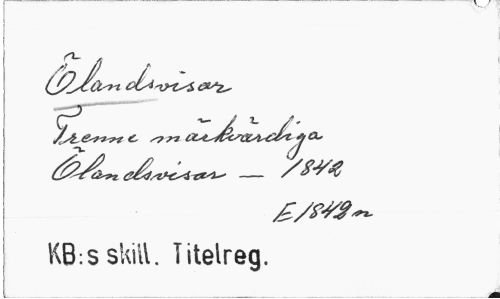 Ölandsvisor
Trenne märkvärdiga
Ölandsvisor — 1842
E 1842 n
KB:s skill. Titelreg.